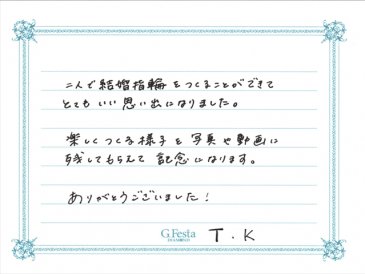 二人で結婚指輪をつくることができて
とてもいい思い出になりました。
楽しくつくる様子を写真や動画に
残してもらえて記念になります。
ありがとうございました!
G.Festa
DIAMOND
T.K